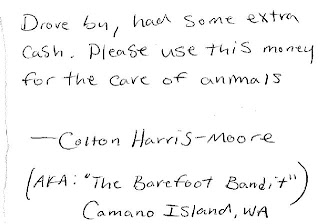 Drove by, had some extra
cash. Please use this money
for the care of animals
—Colton Harris-Moore
(AKA: "The Barefoot Bandit")
Camano Island, WA